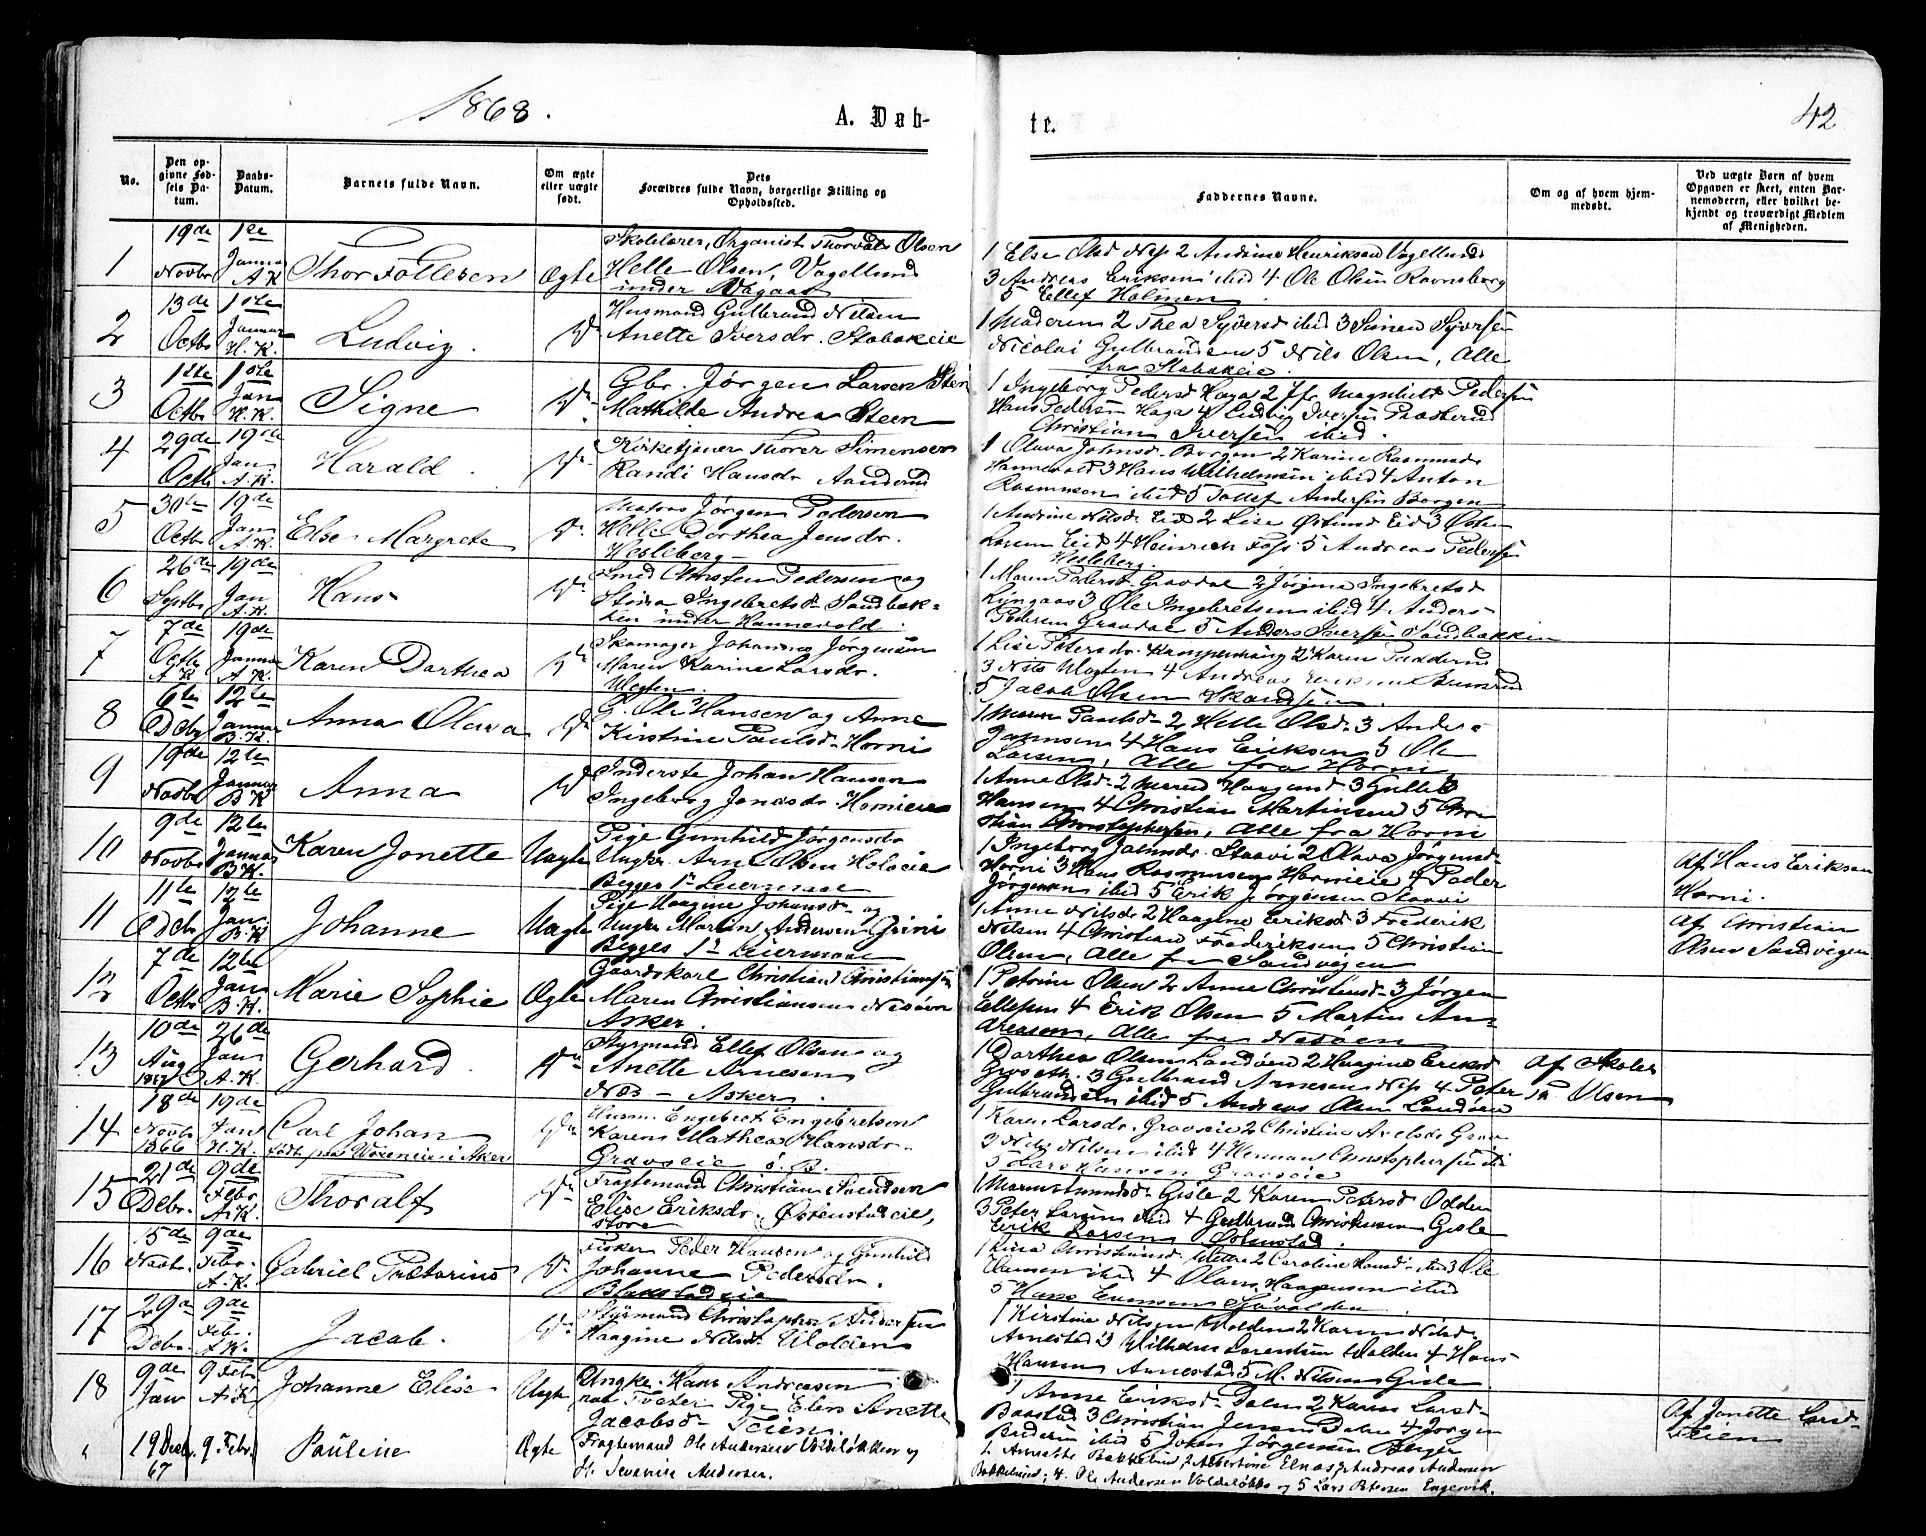 1868.
A. Døb-
te.
42
No.
Den op-
givne Fød-
sels Da-
tum.
Daabs-
Datum.
Barnets fulde Navn.
Om ægte
eller uægte
født.
Dets
Forældres fulde Navn, borgerlige Stilling og
Opholdssted.
Faddernes Navne.
Om og af hvem hjem-
medøbt.
Ved uægte Børn af hvem
Opgaven er skeet, enten Bar-
nemoderen, eller hvilket be-
kjendt og troværdigt Medlem
af Menigheden.
1
19de
Novbr
1ste
Januar
A.K
Thor Follesen
Ægte
Skolelærer, Organist Thorvald Olsen
Helle Olsen, Vøyellund
under
1 Else Olsd Nes 2 Andrine Henriksen Vøyellund
3 Andreas Eriksen ibid 4 Ole Olsen Ravnsborg
5 Ellef Holmen
2
13de
Octbr
1ste
Januar
H.K.
Ludvig.
Do
Husmand Gulbrand Nilsen
Anette Iversdr. Stabækeie
1 Moderen 2 Thea Syversd ibid 3 Simen Syversen
Nicolai Gulbrandsen 5 Nils Olsen, Alle
fra Stabækeie.
3
1ste
Octbr
1ste
Jan
H.K.
Signe
Do
Gbr. Jørgen Larsen Sten
Mathilde Andrea Steen
1 Ingeborg Pedersd Haga 2 Jfr Magnhild Pedersen
Hans Pedersen Haga 4 Ludvig Iversen
Christian Iversen ibid.
4
29de
Octb
19de
Jan
A.K.
Harald
Do
Kirketjener Thorer Simensen
Randi Hansdr Aanderud
1 Olava Johnsd. Borgen 2 Karine Rasmusd
Hannevold 3 Hans Wilhelmsen ibid 4 Anton
Rasmussen ibid 5 Tollef Andersen Borgen
5
30te
Octb
19de
Jan
A.K.
Else Margrete
Do
Matros Jørgen Pedersen
Helle Dorthea Jensdr.
Hesleberg
1 Andrine Nilsd Eid 2 Lise Østensd Eid 3 Østen
Larsen Eid 4 Heinrich Foss 5 Andreas Pedersen
Hesleberg.
6
26de
Septbr
19de
Jan
A.K.
Hans
Do
Smed Christen Pedersen og
Stina Ingebretsd Sandbak-
ken under Hannevold.
1 Maren Pedersd. Gravdal 2 Jørgine Ingebretsd
Ringaas 3 Ole Ingebretsen ibid 4 Anders
Pedersen Gravdal 5 Anders Iversen Sandbakken
7
7de
Octbr
A.K
19de
Januar
A.K.
Karen Dorthea
Do
Skomager Johannes Jørgensen
Maren Karine Larsdr.
1 Lise Petersdr. 2 Karen
3 Nils 4 Andreas
5 Jacob Olsen
8
6te
Decbr
12te
Januar
B.K.
Anna Olava
Do
G. Ole Hansen og Anne
Kirstine Paulsd. Horni
1 Maren Paulsd. 2 Helle Olsd. 3 Anders
4 Hans Eriksen 5 Ole
Larsen, Alle fra Horni
9
19de
Novbr
12te
Januar
B.K
Anna
Do
Inderste Johan Hansen
Ingeborg Jonasdr. Hornieie
1 Anne Olsd. 2 3
Hansen 4 Christian Martinsen 5 Chri
stian Christophersen, Alle fra Horni
10
9de
Novbr
12te
Januar
B.K.
Karen Jonette
Uægte
Pige Gunhild Jørgensdr
Ungkr. Arne Olsen Holoeie
Begges 1ste Leiermaal
1 Ingeborg Staavi 2 Olava Jørgensd.
Horni 3 Hans Rasmussen Hornieie 4 Peder
Jørgensen ibid 5 Erik Jørgensen Staavi
Af Hans Eriksen
Horni.
11
11te
Decbr
12te
Jan.
B.K
Johanne
Uægte
Pige Haagine Johansd. og
Ungkr Martin Andersen
Begges 1ste Leiermaal
1 Anne Nilsdr 2 Haagine Eriksd 3 Frederik
Nilsen 4 Christian Frederiksen 5 Christian
Olsen, Alle fra Sandvigen
Af Christian
Olsen Sandvigen
12
7de
Octbr
12te
Jan
B.K.
Marie Sophie
Ægte
Gaardskarl Christian Christiansen
Maren Christiansen Nesøen
Asker.
1 Petrine Olsen 2 Anne Christensd. 3 Jørgen
Ellefsen 4 Erik Olsen 5 Martin An-
dreasen, Alle fra Nesøen
13
10de
Aug
1867
26de
Jan
A.K.
Gerhard
Do
Styrmand Ellef Olsen og
Anette Arnesen
Næs - Asker.
1 Dorthea Olsen Landøen 2 Haagine Eriksd
Groseth. 3 Gulbrand Arnesen Nes 4 Peter
Gulbrandsen ibid 5 Andreas Olsen Landøen
Af Skolel
Olsen
14
18de
Novbr
1866
19de
Jan
H.K.
Carl Johan
født paa i Aker
Do
Husm. Engebret Engebretsen
Karen Mathea Hansdr.
Gravseie Ø. B.
1 Karen Larsdr. Gravseie 2 Christine Axelsd Grav
3 Nils Nilsen ibid 4 Herman Christophersen ibid
5 Lars Hansen Gravseie
15
21de
Decbr.
9de
Febr
A.K.
Thoralf
Do
Fragtemand Christian Svendsen
Elise Eriksdr. Østenstadeie,
store
1 Maren Gisle 2 Karen Petersd Odden
3 Peter Larsen ibid 4 Gulbrand Christensen Gisle
Erik Larsen Østenstad.
16
15de
Novbr.
9de
Febr.
A.K.
Gabriel Pretorius
Do
Fisker Peder Hansen og Gunhild
Johanne Pedersdr.
Blakstadeie
1 Lina 2 Caroline 3 Ole
Hansen ibid 4 Olaus Haagensen ibid
5 Hans Evensen
17
29de
Decbr.
9de
Febr.
A.K.
Jacob.
Do
Styrmand Christopher Andersen
Haagine Nilsdr. Volden
1 Kirstine Nilsen Volden 2 Karen Nilsd.
Arnestad 3 Wilhelm Lorentsen Volden 4 Hans
Hansen Arnestad 5 M. Nilsen Gisle
18
9de
Jan
9 Febr
A.K
Johanne Elise
Uægte
Ungkr. Hans Andreasen
Pige Elen Anette
Jacobsd. Teien
1 Anne Eriksd. Dalen 2 Karen Larsd.
Baastad 3 Christian Jensen Dalen 4 Jørgen
ibid 5 Johan Jørgensen Berger
Af Jonette Larsd.
Teien
19 Decbr.
67
9 Febr.
Pauline
Ægte
Fragtemand Ole Andersen Voldeløkken og
H. Severine Andersen.
1. Annette Bakkelund, 2 Albertine Elnas, 3 Andreas Andersen
Bakkelund; 4. Ole Andersen Voldeløkke og 5 Lars Petersen Engervik.